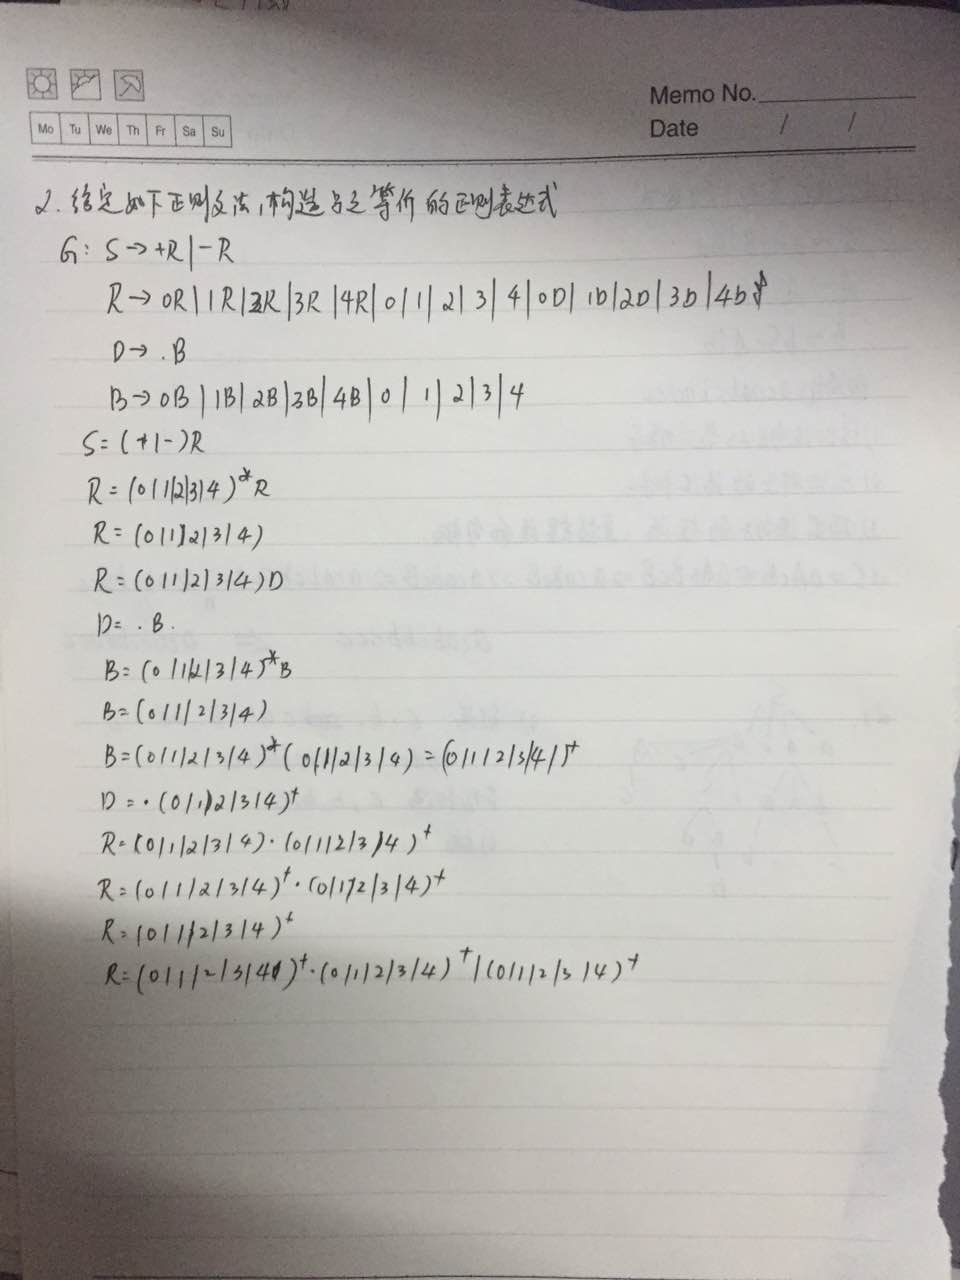 Memo No.
Mo Tu We Th Fr Sa Su
Date / /
2. 给定如下正则文法,构造与之等价的正则表达式
G: S→+R|-R
R→0R|1R|2R|3R|4R|0|1|2|3|4|0D|1D|2D|3D|4D
D→.B
B→0B|1B|2B|3B|4B|0|1|2|3|4
S=(+|-)R
R=(0|1|2|3|4)*R
R=(0|1|2|3|4)
R=(0|1|2|3|4)D
D=.B.
B=(0|1|2|3|4)*B
B=(0|1|2|3|4)
B=(0|1|2|3|4)*(0|1|2|3|4)=(0|1|2|3|4|)+
D=.(0|1|2|3|4)+
R=(0|1|2|3|4).(0|1|2|3|4)+
R=(0|1|2|3|4)+.(0|1|2|3|4)+
R=(0|1|2|3|4)+
R=(0|1|2|3|4)+.(0|1|2|3|4)+|(0|1|2|3|4)+